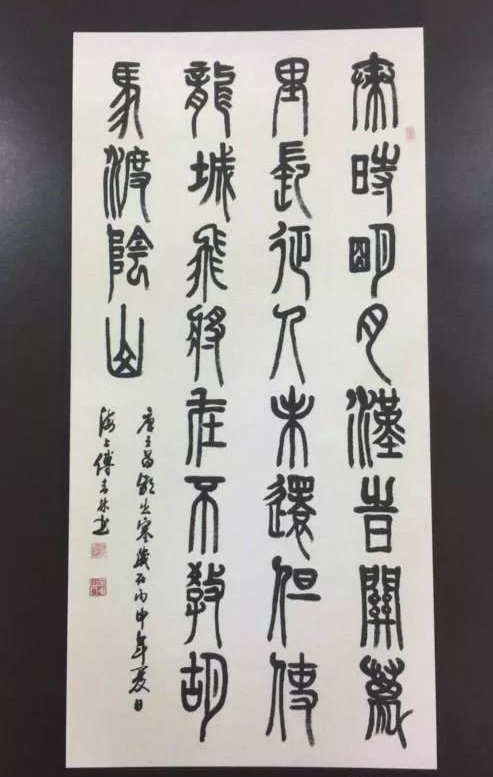 秦時明月漢旹關萬
里長征人未還但使
龍城飛將在不教胡
馬渡陰山
唐王昌齡出塞歲在丙申年夏日
海上傅林書